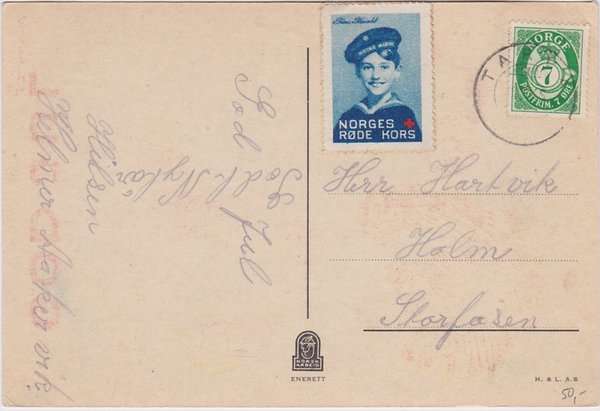 God Jul
Godt Nyttår
Hilsen
Prins Harald
NORSKE MARINE
NORGES
RØDE KORS
NORGE
7
POSTFRIM. 7 ØRE
TA
Herr Hartvik
Holm
Storfosen
NORSK
ARBEID
ENERETT
H. & L. A.S
50,-